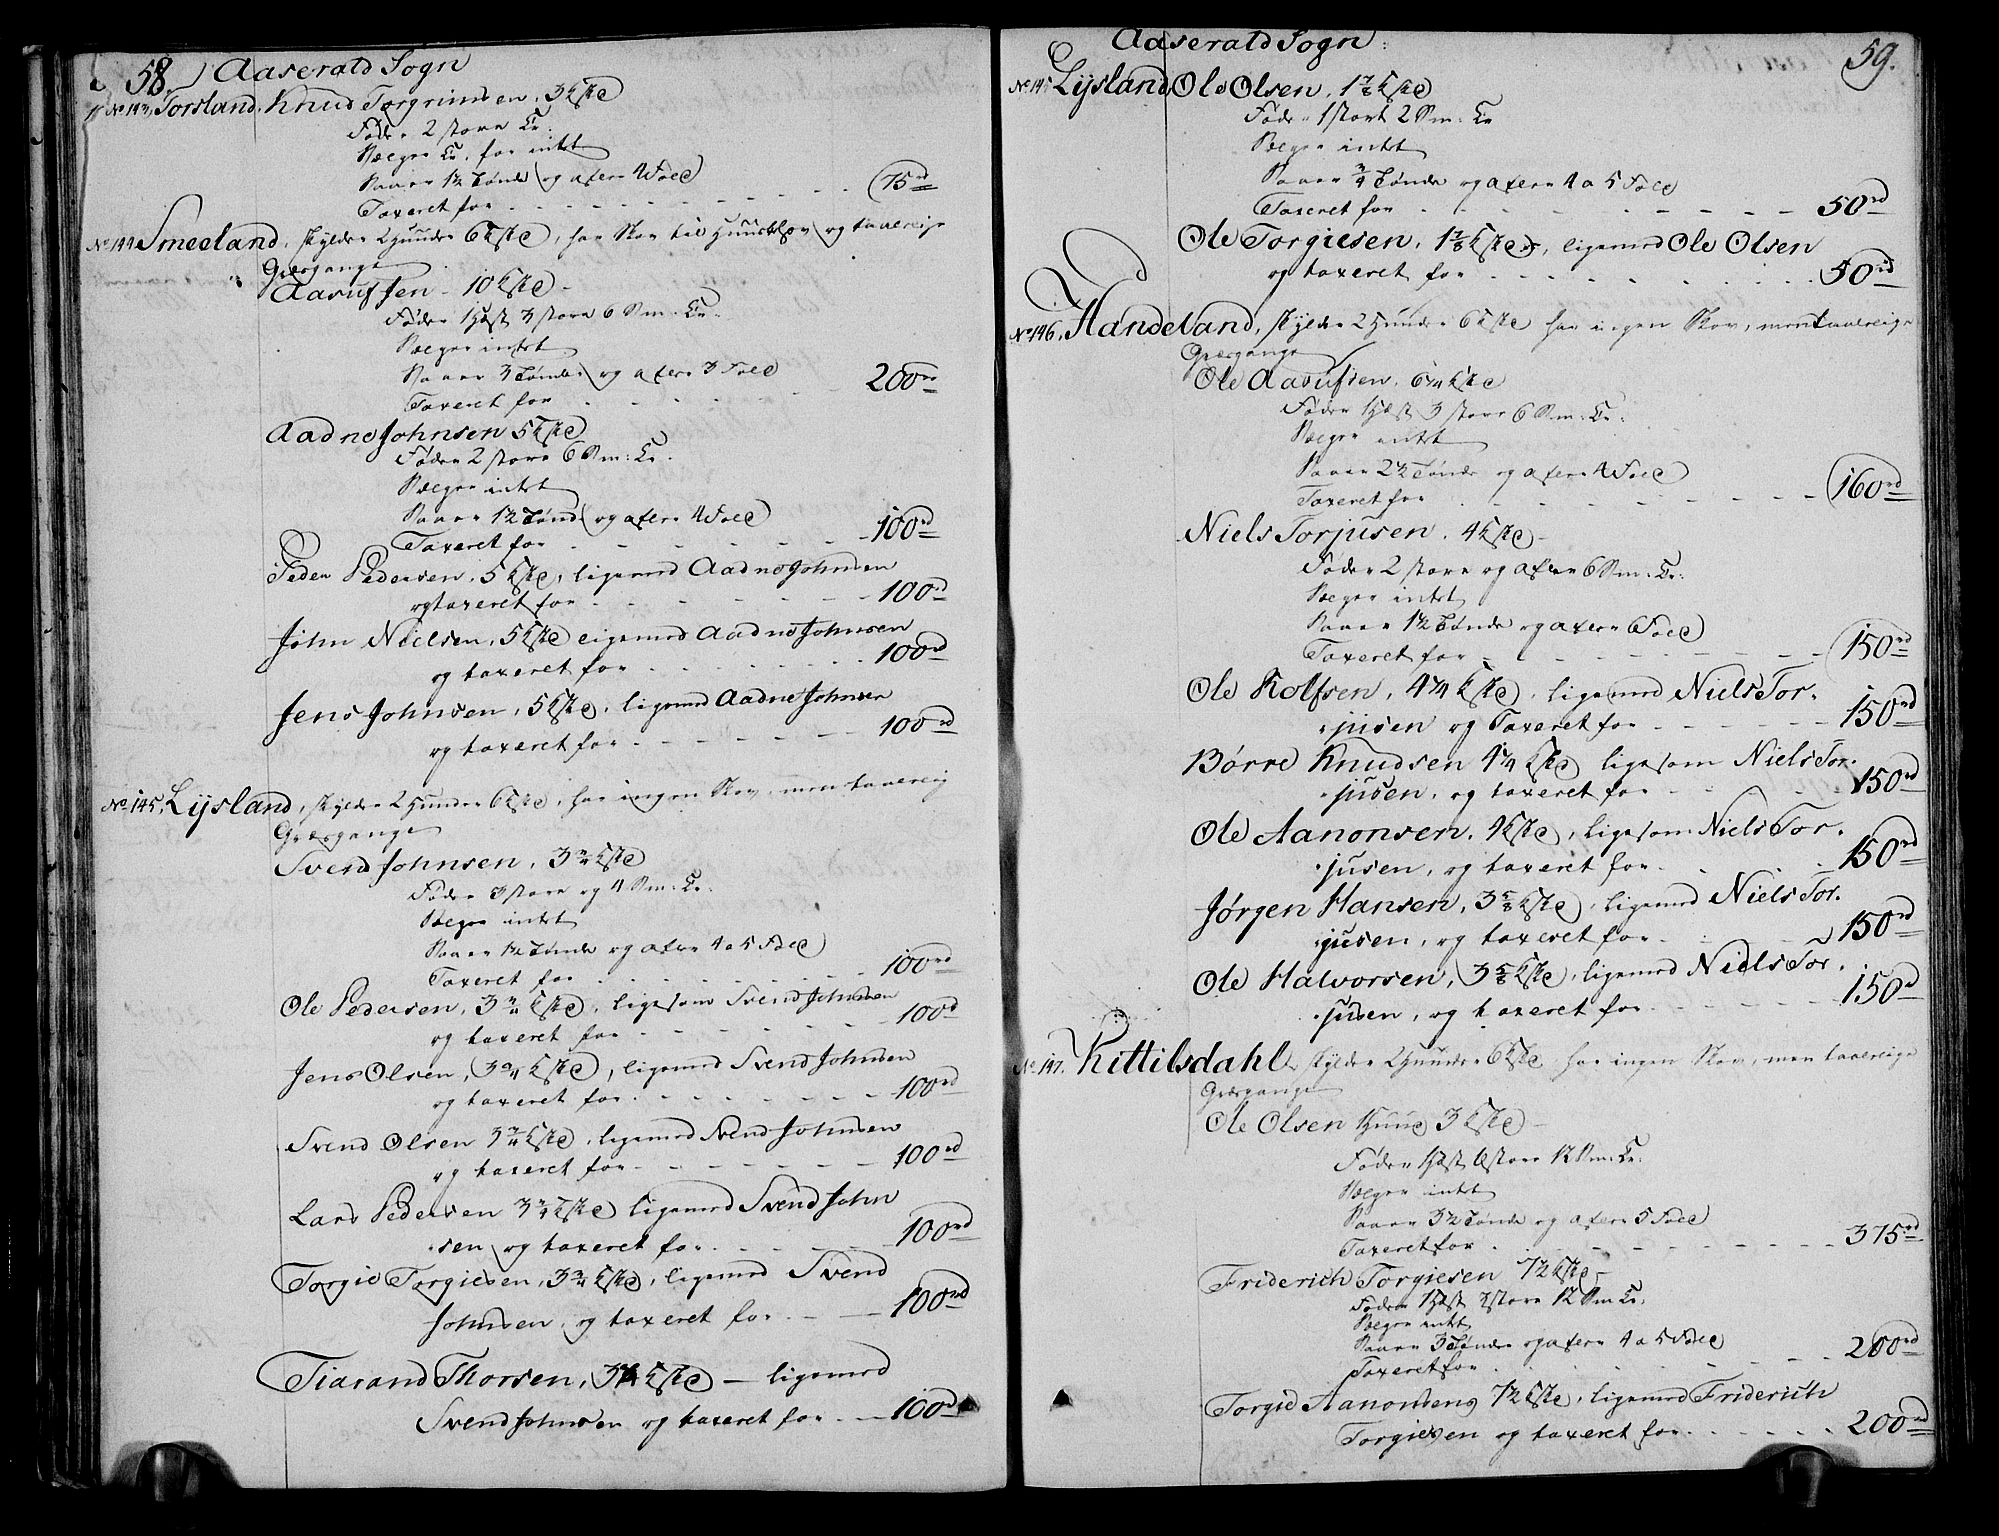 58. Aaserald Sogn
No 143, Torsland. Knud Torgrimsen, 3 K
Føder 2 store Kr.
Sælger Kr. for intet
Saaer 1½ Tønde og avler 4 Fold
Taxeret for 75rd
No 144 Smeeland, skylder 2 Huuder 6 K, har Skov til Huusbehov og taalelige
Græsgange
Aasuf Jensen 10 K
Føder 1 Hæst 3 store 6 Sm: Kr.
Sælger intet
Saaer 3 Tønder og avler 3 Fold
Taxeret for 200rd
Aadne Johnsen 5 K
Føder 2 store 6 Sm: Kr.
Sælger intet
Saaer 1½ Tønde og avler 4 Fold
Taxeret for 100rd
Peder Pedersen, 5 K, ligemed Aadne Johnsen
og taxeret for 100rd
John Nielsen, 5 K ligemed Aadne Johnsen
og taxeret for 100rd
Jens Johnsen, 5 K, ligemed Aadne Johnsen
og taxeret for 100rd
No 145, Lysland, skylder 2 Huuder 6 K, har ingen Skov, men taalelig
Græsgange
Svend Johnsen, 3¾ K
Føder 3 store og 4 Sm: Kr.
Sælger intet
Saaer 1½ Tønde og avler 4 a 5 Fold
Taxeret for 100rd
Ole Pedersen, 3¾ K, ligesom Svend Johnsen
og taxeret for 100rd
Jens Olsen, 3¾ K, ligemed Svend Johnsen
og taxeret for 100rd
Svend Olsen 3¾ K, ligemed Svend Johnsen
og taxeret for 100rd
Lars Pedersen 3¾ K ligemed Svend John
sen og taxeret for 100rd
Torgie Torgiesen, 3¾ K, ligemed Svend
Johnsen, og taxeret for 100rd
Tiarand Thorsen, 3¾ K ligemed
Svend Johnsen og taxeret for 100rd
Aaserald Sogn 59.
No 145 Lysland, Ole Olsen, 1⅞ K
Føder 1 stort 2 Sm: Kr
Sælger intet
Saaer ¾ Tønde og avler 4 a 5 Fold
Taxeret for 50rd
Ole Torgiesen, 1⅞ K, ligemed Ole Olsen
og taxeret for 50rd
No 146, Handeland, skylder 2 Huuder 6 K har ingen Skov, men taalelige
Græsgange
Ole Aasufsen, 6¼ K
Føder 1 Hæst 3 store 6 Sm: Kr.
Sælger intet
Saaer 2½ Tønde og avler 4 Fold
Taxeret for 160rd
Niels Torjusen, 4 K
Føder 2 store og avler 6 Sm: Kr:
Sælger intet
Saaer 1½ Tønde og avler 6 Fold
Taxeret for 150rd
Ole Rolfsen, 4¼ K, ligemed Niels Tor-
jusen og Taxeret for 150rd
Børre Knudsen 4¼ K ligesom Niels Tor-
jusen, og taxeret for 150rd
Ole Aanonsen, 4 K, ligesom Niels Tor-
jusen, og taxeret for 150rd
Jørgen Hansen, 3⅝ K, ligemed Niels Tor-
jusen, og taxeret for 150rd
Ole Halvorsen, 3⅝ K, ligemed Niels Tor-
jusen, og taxeret for 150rd
No 147, Kittilsdahl, skylder 2 Huuder 6 K har ingen Skov, men taalelige
Græsgange
Ole Olsen 1 Huud 3 K
Føder 1 Hæst 6 store 12 Sm: Kr.
Sælger intet
Saaer 3½ Tønde og avler 5 Fold
Taxeret for 375rd
Friderich Torgiesen 7½ K
Føder 1 Hæst 3 store 12 Sm Kr.
Sælger intet
Saaer 3 Tønder og avler 4 a 5 Fold
Taxeret for 200rd
Torgie Aanonsen 7½ K, ligemed Friderich
Torgiesen og taxeret for 200rd